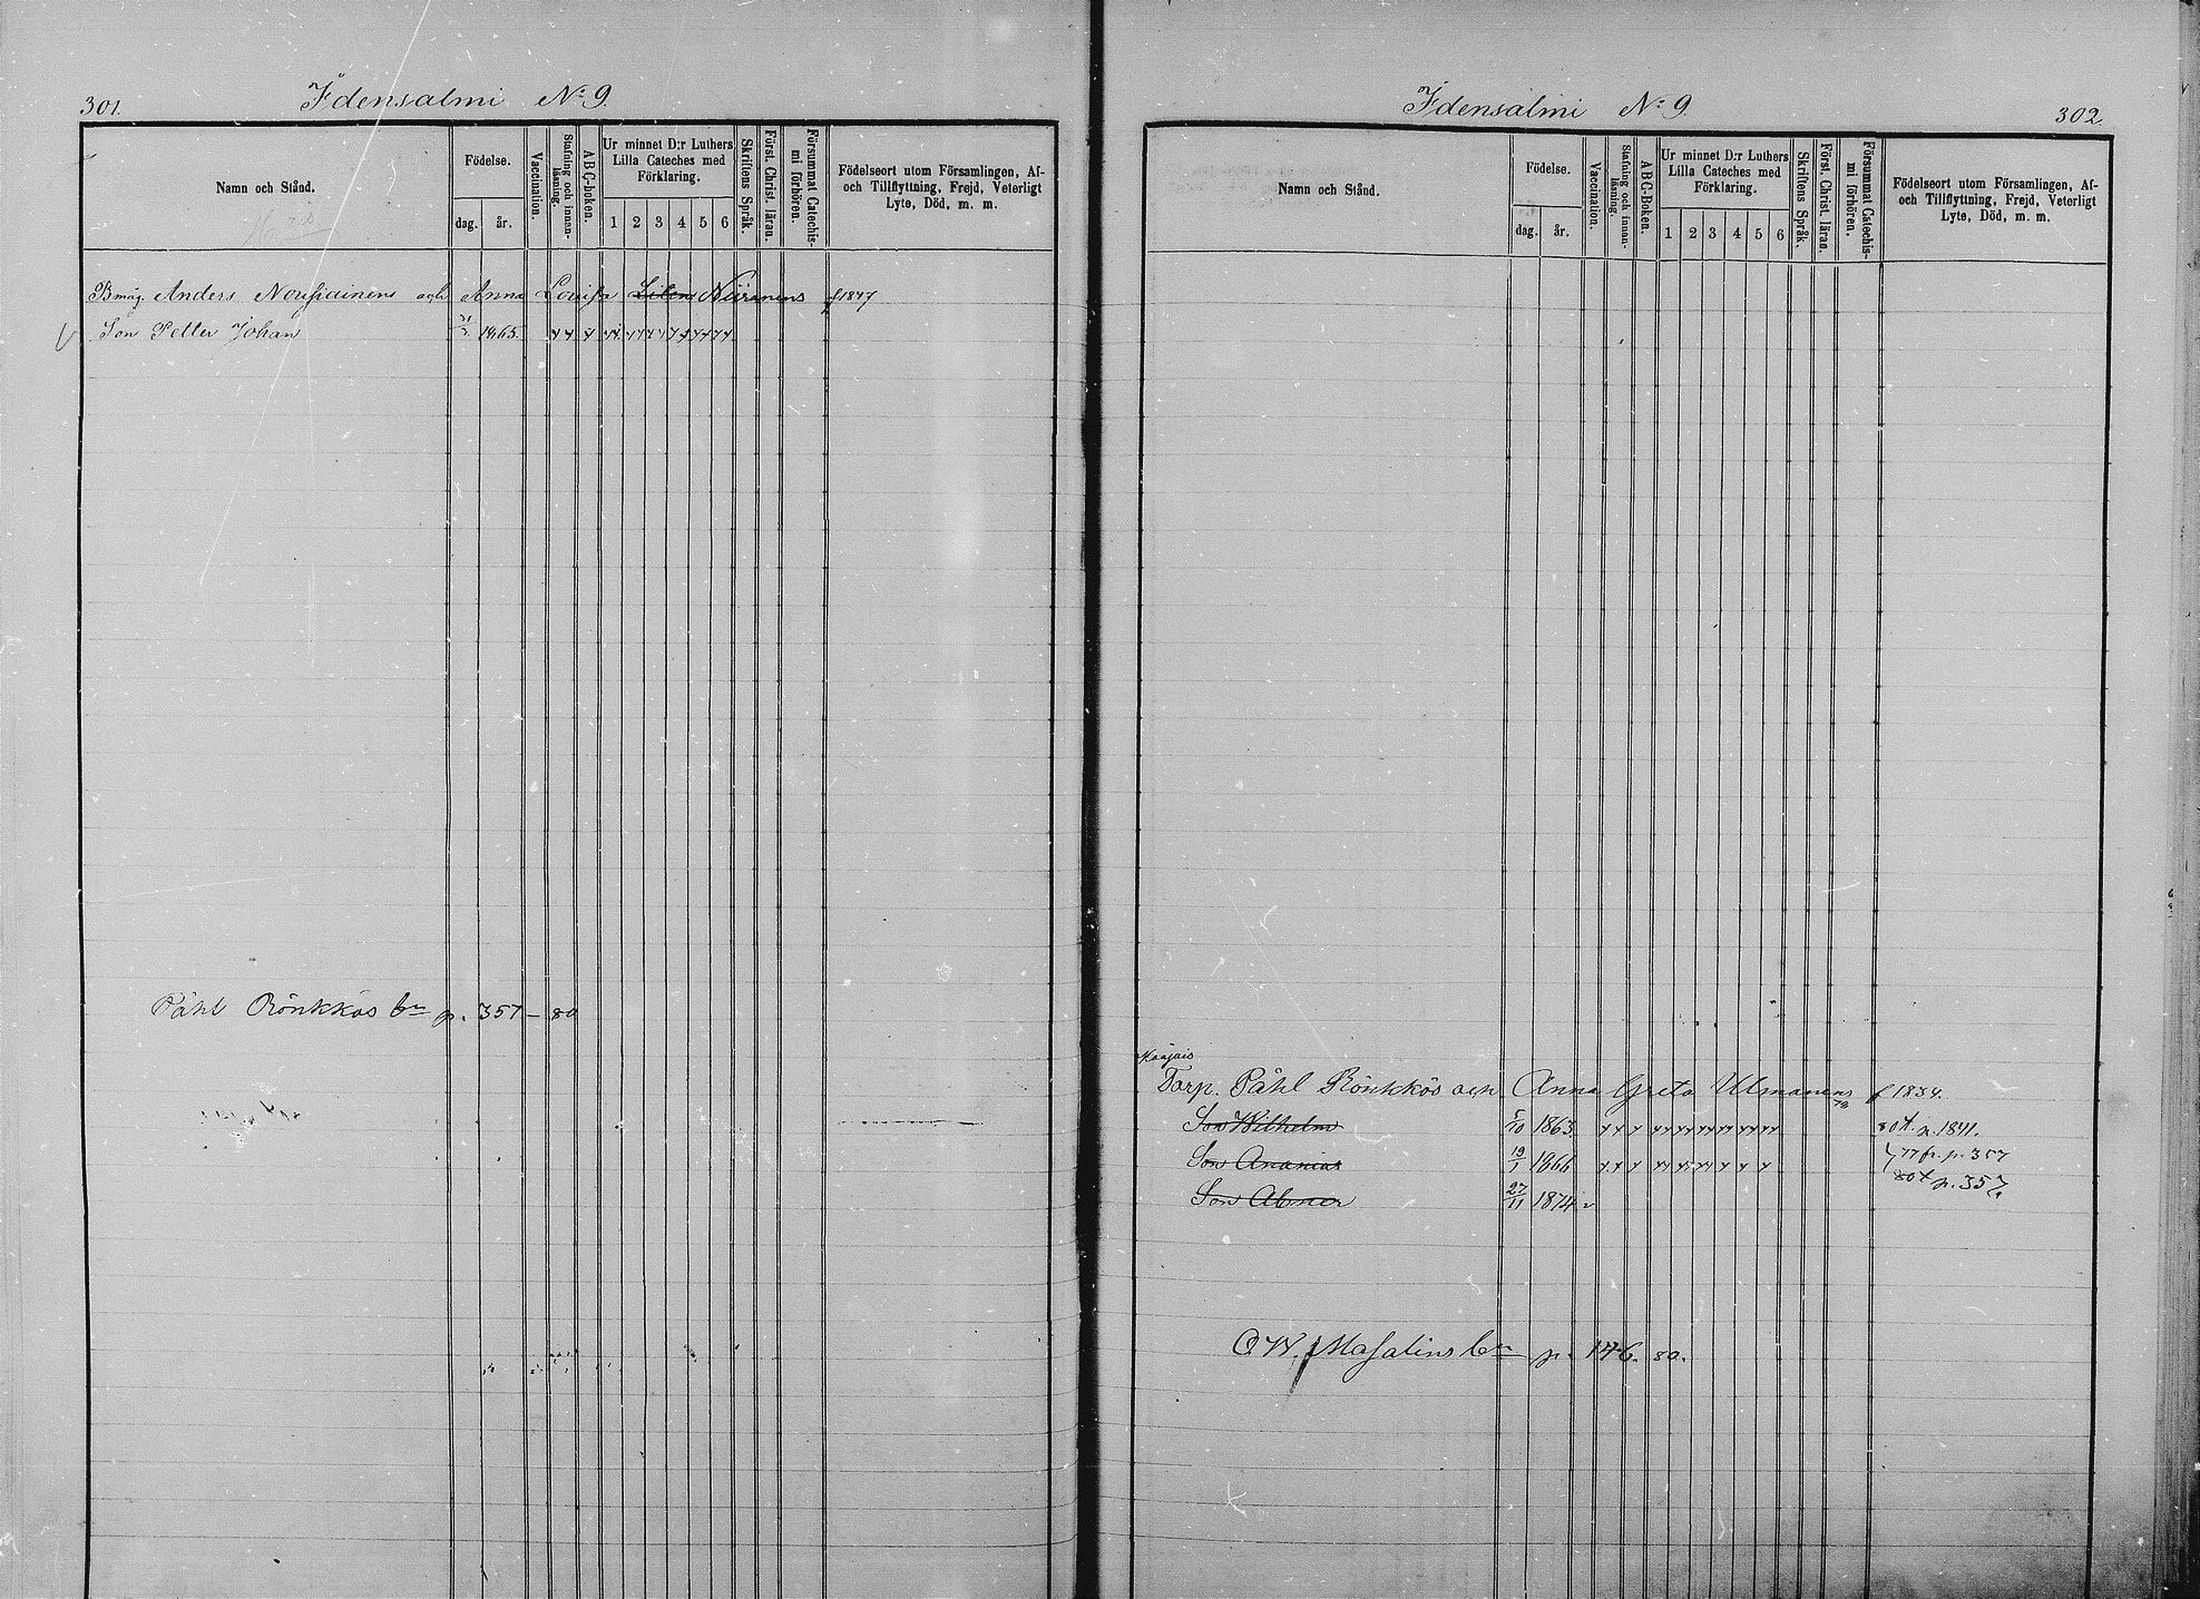 301.
Idensalmi No 9.
Namn och Stånd.
Födelse.
dag.
år.
Vaccination.
Stafning och innanläsning.
ABC-boken.
Ur minnet D:r Luthers
Lilla Cateches med
Förklaring.
1 2 3 4 5 6
Skriftens Språk.
Först. Christ. läran.
Försummat Catechismi förhören.
Födelseort utom Församlingen, Af-
och Tillflyttning, Frejd, Veterligt
Lyte, Död, m. m.
Anders Nousiainens och Anna Lovisa Niiranens f 1847
Son Petter Johan 1865.
Påhl Rönkkös bn p. 357 – 80
Idensalmi No 9.
302.
Namn och Stånd.
Födelse.
dag.
år.
Vaccination.
Stafning och innanläsning.
ABC-Boken.
Ur minnet D:r Luthers
Lilla Cateches med
Förklaring.
1 2 3 4 5 6
Skriftens Språk.
Först. Christ. läran.
Försummat Catechismi förhören.
Födelseort utom Församlingen, Af-
och Tillflyttning, Frejd, Veterligt
Lyte, Död, m. m.
Torp. Påhl Rönkkös och Anna Greta Ulmanens f 1834.
Son Wilhelm 5/10 1863. 80 t. p. 1841.
Son Ananias 19/1 1866 77 fr. p. 357
Son Abner 27/11 1874 80 t p. 357
O W. Masalins bn p. 146. 80.